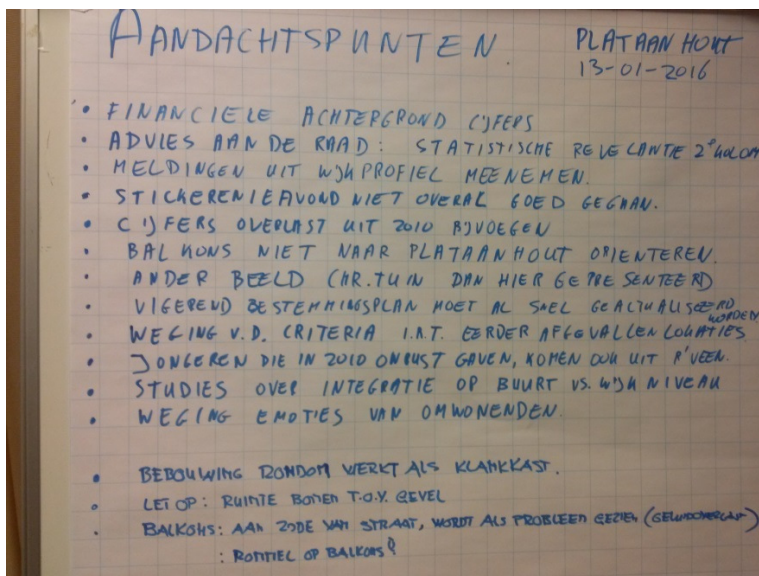 AANDACHTSPUNTEN PLATAANHOUT
13-01-2016
• FINANCIELE ACHTERGROND CIJFERS
• ADVIES AAN DE RAAD: STATISTISCHE RELEVANTIE 2e KOLOM
• MELDINGEN UIT WIJKPROFIEL MEENEMEN.
• STICKERENIEAVOND NIET OVERAL GOED GEGAAN.
• CIJFERS OVERLAST UIT 2010 BIJVOEGEN
• BALKONS NIET NAAR PLATAANHOUT ORIENTEREN.
• ANDER BEELD CHR. TUIN DAN HIER GEPRESENTEERD
• VIGEREND BESTEMMINGSPLAN MOET AL SNEL GEACTUALISEERD
WORDEN
• WEGING V.D. CRITERIA I.R.T. EERDER AFGEVALLEN LOKATIES
• JONGEREN DIE IN 2010 ONRUST GAVEN, KOMEN OOK UIT R'VEEN.
• STUDIES OVER INTEGRATIE OP BUURT VS. WIJK NIVEAU
• WEGING EMOTIES VAN OMWONENDEN.
• BEBOUWING RONDOM WERKT ALS KLANKKAST.
• LET OP: RUIMTE BOMEN T.O.V. GEVEL
• BALKONS: AAN ZIJDE VAN STRAAT, WORDT ALS PROBLEEM GEZIEN (GELUIDOVERLAST)
: ROMMEL OP BALKONS?